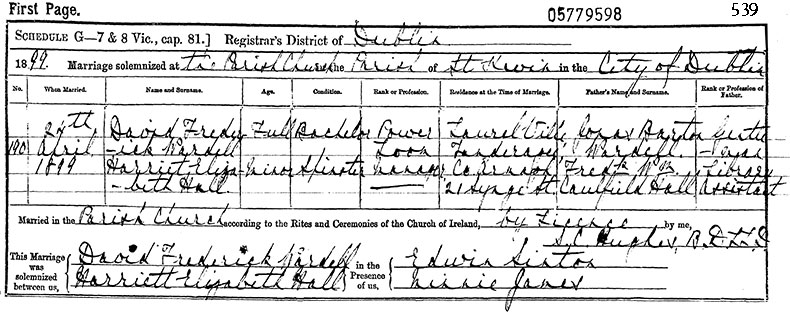 First Page. 05779598 539
SCHEDULE G—7 & 8 Vic., cap. 81.] Registrar's District of Dublin
1899. Marriage solemnized at the Parish Church in the Parish of St Kevin in the City of Dublin
No. When Married. Name and Surname. Age. Condition. Rank or Profession. Residence at the Time of Marriage. Father's Name and Surname. Rank or Profession of Father.
24th David Freder Full Bachelor Power Laurel Ville Jonas Barton Gentle
190 April -ick Wardell Loom Tanderagee Wardell -man
1899 Harriet Eliza- minor Spinster manager Co. Armagh Fredk Wm. Library
-beth Hall. 21 Synge St. Caulfield Hall Assistant
Married in the Parish Church according to the Rites and Ceremonies of the Church of Ireland, by Licence by me,
S. C. Hughes, B.D. LL.D
This Marriage was solemnized between us, David Frederick Wardell in the Presence of us, Edwin Sinton
Harriett Elizabeth Hall Minnie James